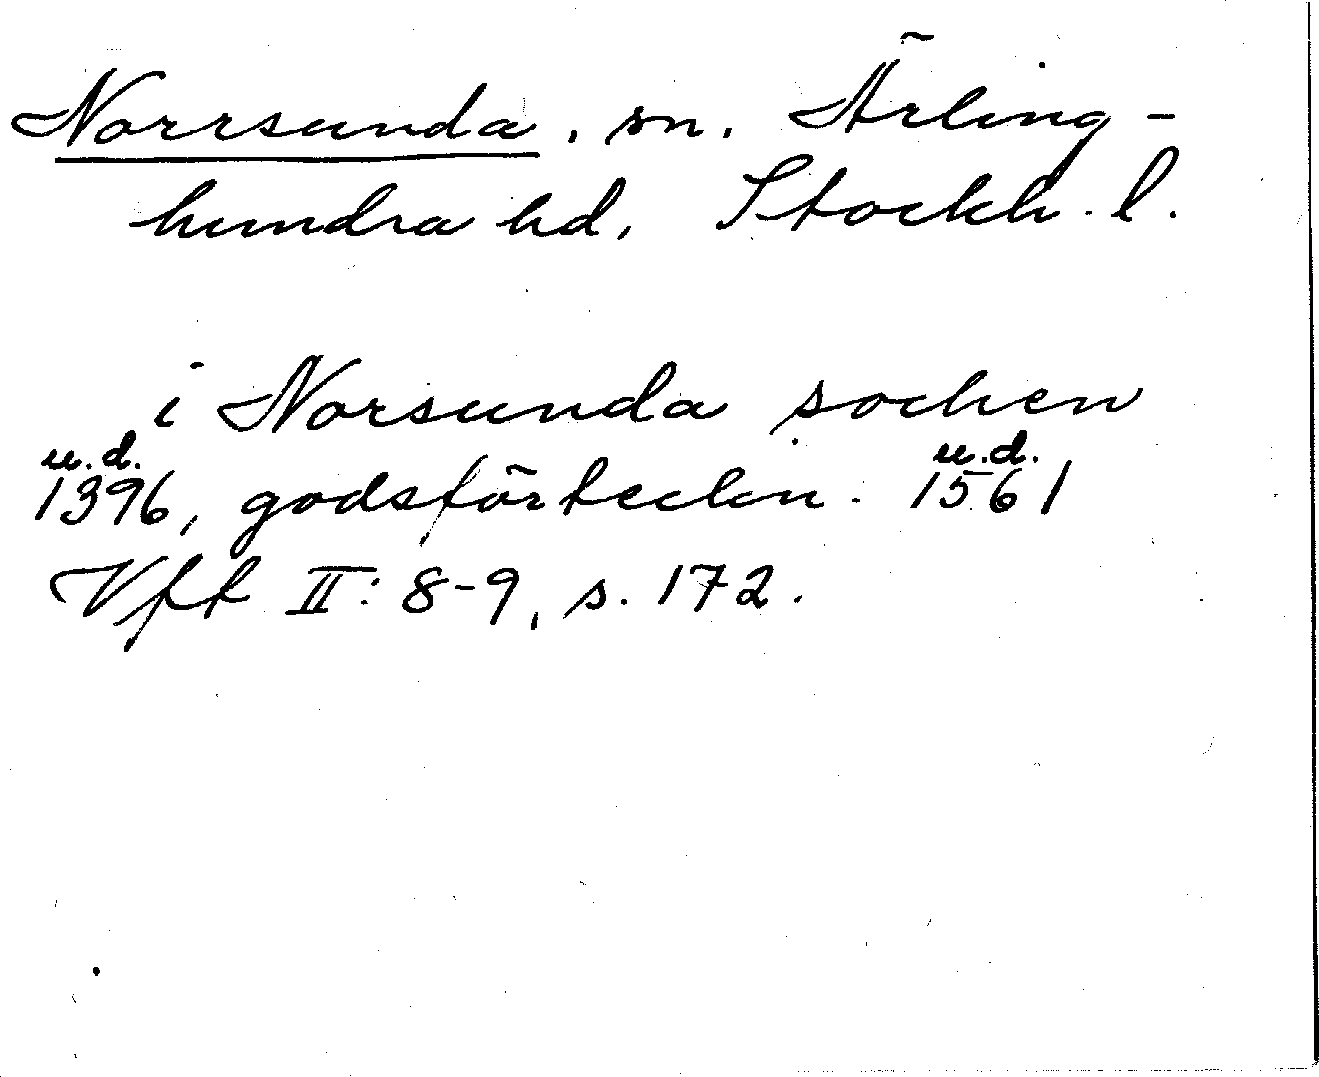 Norrsunda, sn. Ärling-
hundra hd, Stockh. l.
i Norsunda sochen
u.d. u.d.
1396, godsförteckn. 1561
Vft II: 8-9, s. 172.